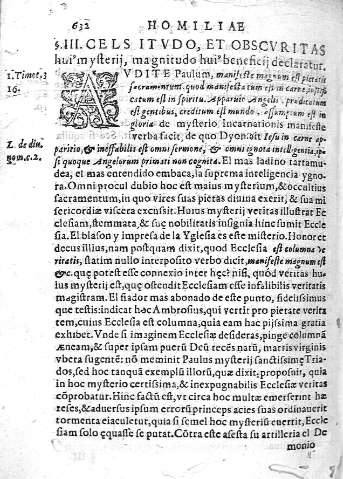 632 HOMILIAE
§.III. CELSITUDO, ET OBSCURITAS
hui⁹ mysterij, magnitudo hui⁹ beneficij declaratur.
AUDITE Paulum, manifeste magnum est pietatis
1. Timot. 3
16.
sacramentum, quod manifestatum est in carne, iustifi-
catum est in spiritu. Apparuit Angelis, prædicatum
est gentibus, creditum est mundo, assumptum est in
gloria: de mysterio Incarnationis manifeste
verba facit, de quo Dyon. ait Iesu in carne ap-
L. de diu.
nom. c. 2,
paritio, & ineffabilis est omni sermone, & omni ignota intelligentia, ip-
si quoque Angelorum primati non cognita. El mas ladino tartamu-
dea, el mas entendido embaça, la suprema inteligencia ygno-
ra. Omni procul dubio hoc est maius mysterium, & occultius
sacramentum, in quo vires suas pietas diuina exerit, & sua mi
sericordiæ viscera excussit. Huius mysterij veritas illustrat Ec
clesiam, stemmata, & suę nobilitatis insignia hinc sumit Eccle
sia. El blason y impresa de la Yglesia es este misterio. Honor et
decus illius, nam postquam dixit, quod Ecclesia est columna ve
ritatis, statim nullo interposito verbo dicit, manifeste magnum est
&c. que potest esse connexio inter hęc? nisi, quòd veritas hu
ius mysterij est, que ostendit Ecclesiam esse infallibilis veritatis
magistram. El fiador mas abonado de este punto, fidelissimus
que testis: indicat hoc Ambrosius, qui vertit pro pietate verita
tem, cuius Ecclesia est columna, quia eam hac pijssima gratia
exhibet. Vnde si imaginem Ecclesiæ desideras, pinge columnã
æneam, & super ipsam puerũ Deũ recẽs natũ, matris virginis
vbera sugentẽ: nõ meminit Paulus mysterij sanctissimę Tria-
dos, sed hoc tanquã exemplũ illorũ, quæ dixit, proposuit, quia
in hoc mysterio certissima, & inexpugnabilis Ecclesiæ veritas
cõprobatur. Hinc factũ est, vt circa hoc multæ emerserint hæ
reses, & aduersus ipsum errorũ princeps acies suas ordinauerit
tormenta eiaculetur, quia si semel hoc mysterium euertit, Eccle
siam solo ęquasse se putat. Cõtra este asesta su artilleria el De
monio